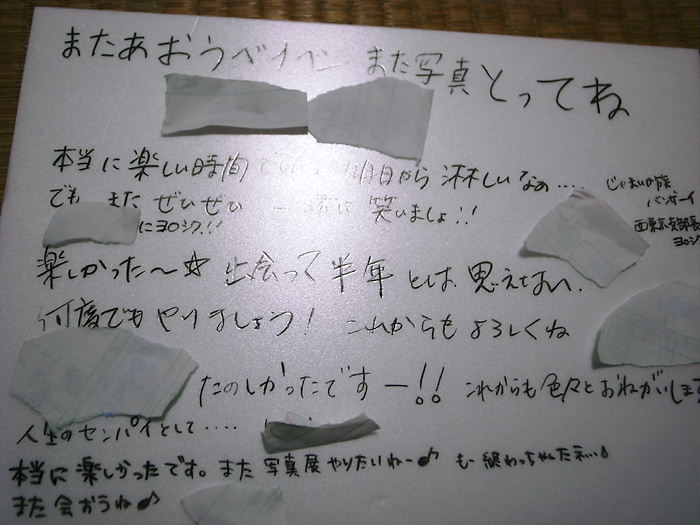 またあおうベイベー また写真とってね
本当に楽しい時間でした 明日から淋しいなぁ....
でも またぜひぜひ 一緒に笑いましょ!!
にヨロシク!!
じゃまいか族
バンザーイ
西東京支部長
ヨロシ
楽しかった〜☆ 出会って半年とは思えない.
何度でもやりましょう! これからもよろしくね
たのしかったですー!! これからも色々とおねがいします
人生のセンパイとして....
本当に楽しかったです。また写真展やりたいねー♪ もー終わっちゃったネぃ♪
また会おうね♪